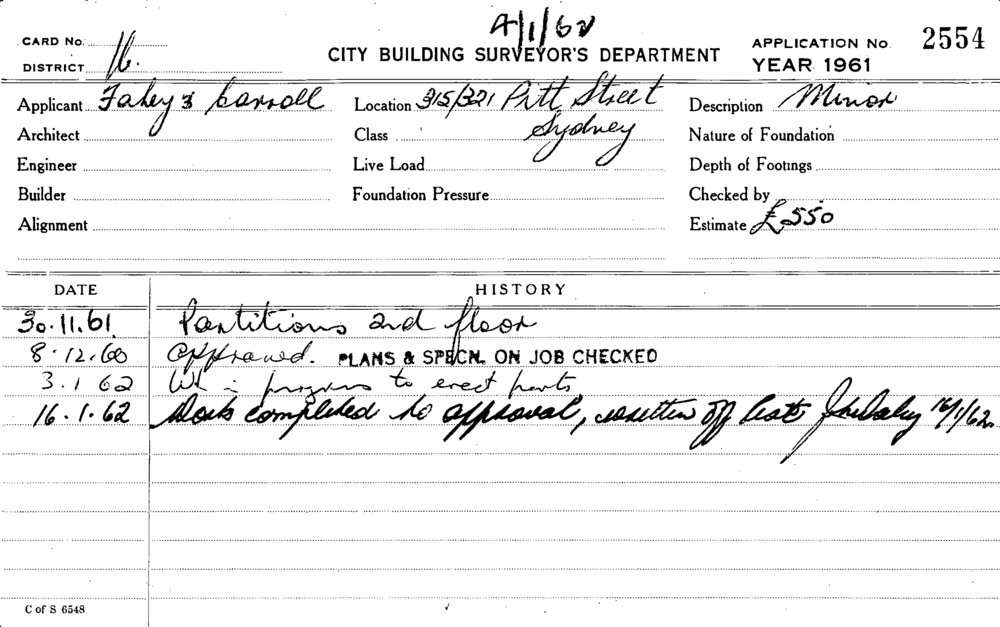 4/1/62
CARD No. CITY BUILDING SURVEYOR'S DEPARTMENT APPLICATION No. 2554
DISTRICT 16. YEAR 1961
Applicant Fahey & Carroll Location 315/321 Pitt Street Description Minor
Architect Class Sydney Nature of Foundation
Engineer Live Load Depth of Footings
Builder Foundation Pressure Checked by
Alignment Estimate £550
DATE HISTORY
30.11.61. Partitions 2nd floor
8.12.60 approved. PLANS & SPECN. ON JOB CHECKED
3.1 62 Wk in progress to erect parts
16.1.62 Work completed to approval, written off 16/1/62.
C of S 6548